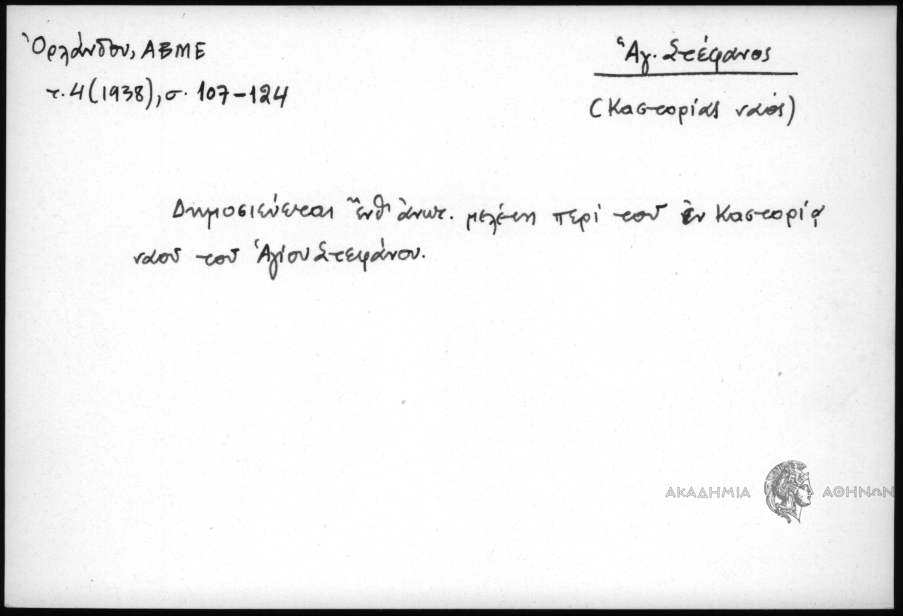 Ὀρλάνδου, ΑΒΜΕ
τ. 4 (1938), σ. 107-124
Ἁγ. Στέφανος
(Καστορίας ναός)
Δημοσιεύεται ἔνθ' ἀνωτ. μελέτη περί τοῦ ἐν Καστορίᾳ
ναοῦ τοῦ Ἁγίου Στεφάνου.
ΑΚΑΔΗΜΙΑ ΑΘΗΝΩΝ